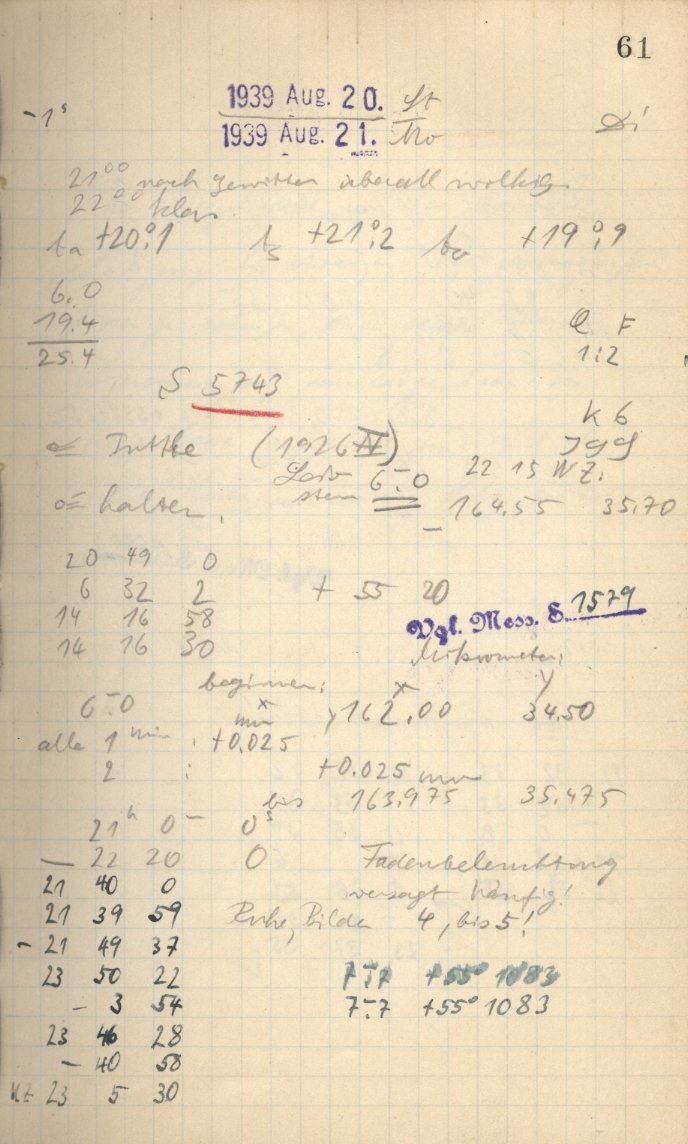 61
1939 Aug. 20. St
-1ˢ Di
1939 Aug. 21.
21⁰⁰ nach gewitter überall wolkig
22⁰⁰ klar
+20°,1 +21°,2 +19°,9
6.0
19.4
25.4
F
1:2
S 5743
K 6
(1926 IV)
Jgg
Leitstern 6ᵐ.0 22 15 WZ.
halten. - 164.55 35.70
20 49 0
6 32 2 + 55 20
14 16 58 Vgl. Mess. S. 1579
14 16 30 Mikrometer:
beginnen: x y
6ᵐ.0 x mm 162.00 34.50
alle 1 min : +0.025
2 : +0.025 mm
bis 163.975 35.475
21ʰ 0ᵐ 0ˢ
— 22 20 0 Fadenbeleuchtung
21 40 0 versagt häufig!
21 39 59 Ruhe, Bilder 4, bis 5!
- 21 49 37
23 50 22 7ᵐ.7 +55° 1083
- 3 54 7ᵐ.7 +55° 1083
23 46 28
- 40 58
WZ 23 5 30